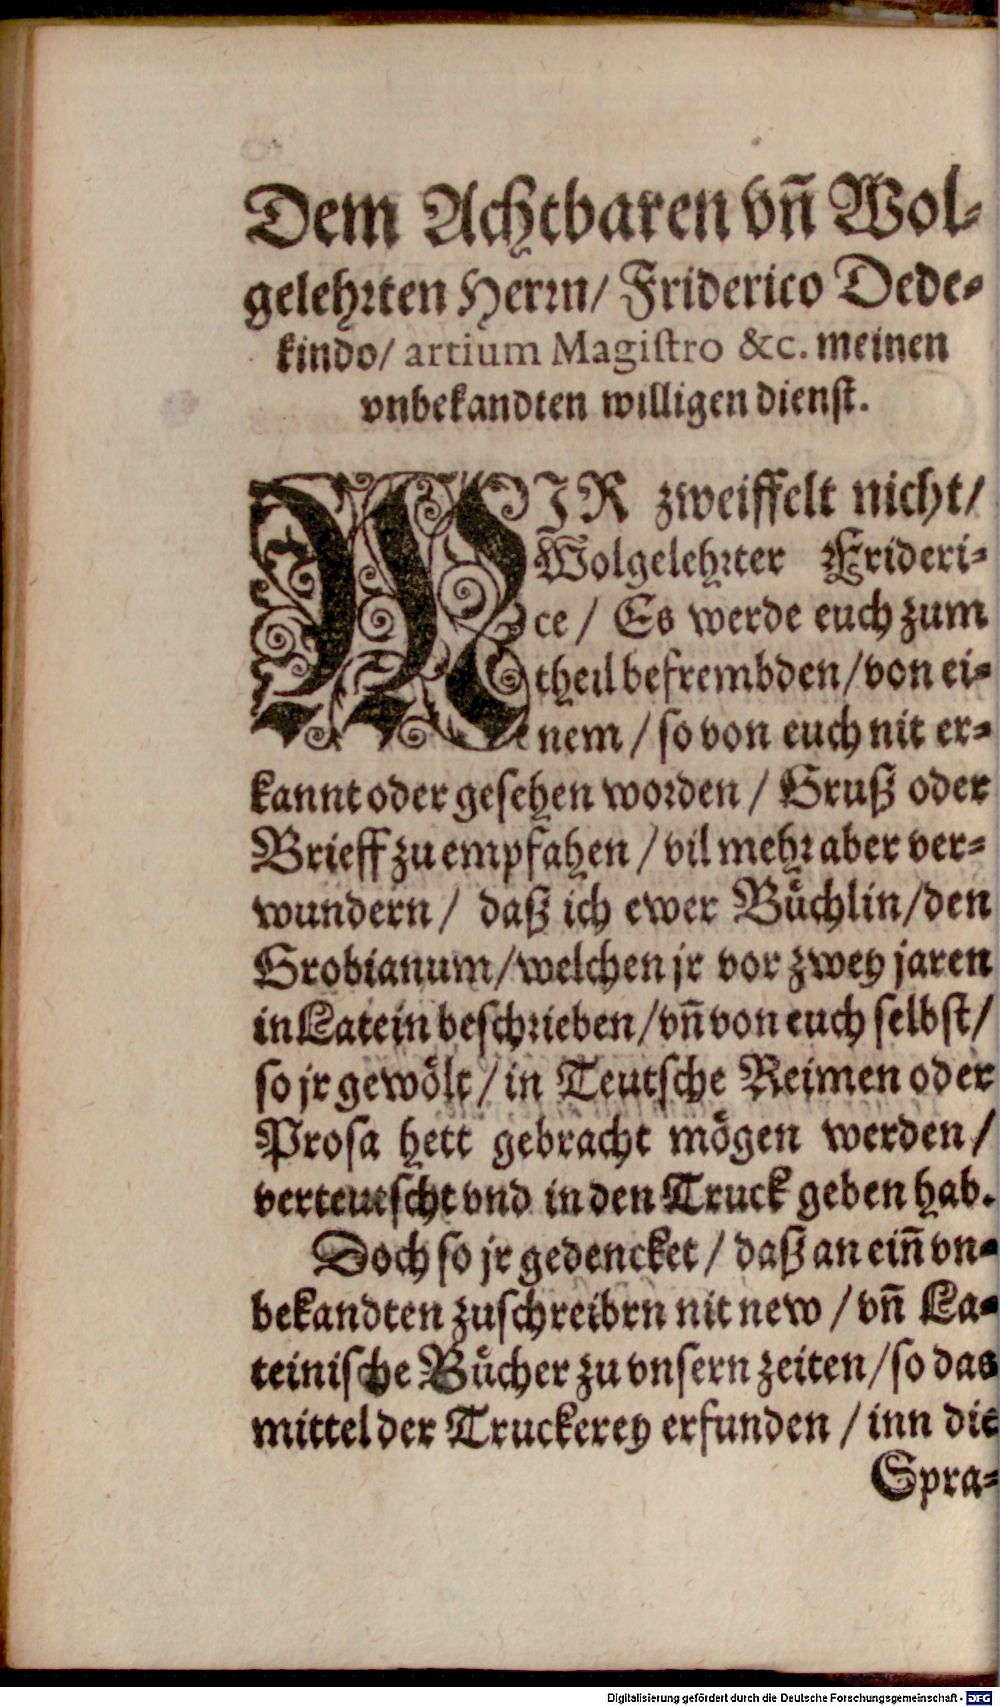 Dem Achtbaren vñ Wol-
gelehrten Herrn/ Friderico Dede-
kindo/ artium Magistro &c. meinen
vnbekandten willigen dienst.
MIR zweiffelt nicht/
Wolgelehrter Frideri-
ce/ Es werde euch zum
theil befrembden/von ei-
nem/ so von euch nit er-
kannt oder gesehen worden/ Gruß oder
Brieff zu empfahen/ vil mehr aber ver-
wundern/ daß ich ewer Bůchlin/den
Grobianum/welchen jr vor zwey jaren
in Latein beschrieben/vñ von euch selbst/
so jr gewölt/ in Teutsche Reimen oder
Prosa hett gebracht mögen werden/
verteutscht vnd in den Truck geben hab.
Doch so jr gedencket/ daß an eiñ vn-
bekandten zuschreibrn nit new/ vñ La-
teinische Bůcher zu vnsern zeiten/so das
mittel der Truckerey erfunden/ inn die
Spra-
Digitalisierung gefördert durch die Deutsche Forschungsgemeinschaft - DFG